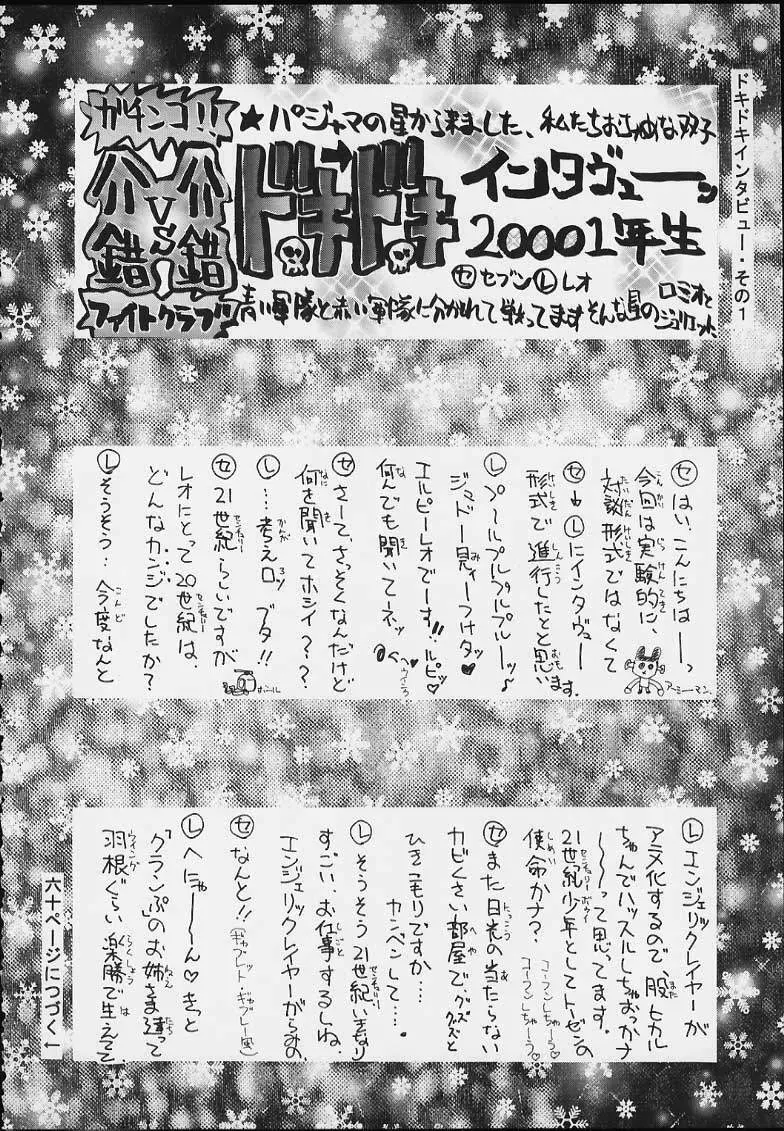 ドキドキインタビュー・その1
ガチンコ!!
介錯
VS
介錯
ファイトクラブ
★パジャマの星から来ました、私たちおちゃめな双子
ドキドキ
インタヴューーッ
20001年生
㋝セブンⓁレオ
青い軍隊と赤い軍隊に分かれて戦ってますそんな星の
ロミオと
ジュリエット
㋝はい、こんにちはーっ
今回は実験的に、
対談形式ではなくて
㋝→Ⓛにインタヴュー
形式で進行したとと思い
ます。
アーミーマン。
Ⓛプールプルプルプルーッ♪
ジュドー見ィーつけタッ♥
エルピーレオでーす!!ルピッ♥
何んでも聞いてーネッ
㋝さーて、さっそくなんだけど
何を聞いてホシイ??
Ⓛ…考えロッ ブタ!!
㋝21世紀らしいですが
レオにとって20世紀は、
どんなカンジでしたか?
Ⓛそうそう…今度なんと
Ⓛエンジェリックレイヤーが
アニメ化するので、股ヒカル
ちゃんでハッスルしちゃおっかナ
〜〜って思ってます。
21世紀少年としてトーゼンの
使命かナ?
コーフンしちゃーう
コーフンしちゃーう♡
㋝また日光の当たらない
カビくさい部屋で、グズグズと
ひきこもりですか…
カンベンして…。
Ⓛそうそう21世紀いきなり
すごい、お仕事するしね。
エンジェリックレイヤーがらみの
㋝なんと!!(ギャブレット・ギャブレー風)
Ⓛへにゃ〜〜ん♡きっと
「グランぷ」のお姉さま達って
羽根ぐらい楽勝で生えてて
六十ページにつづく↓